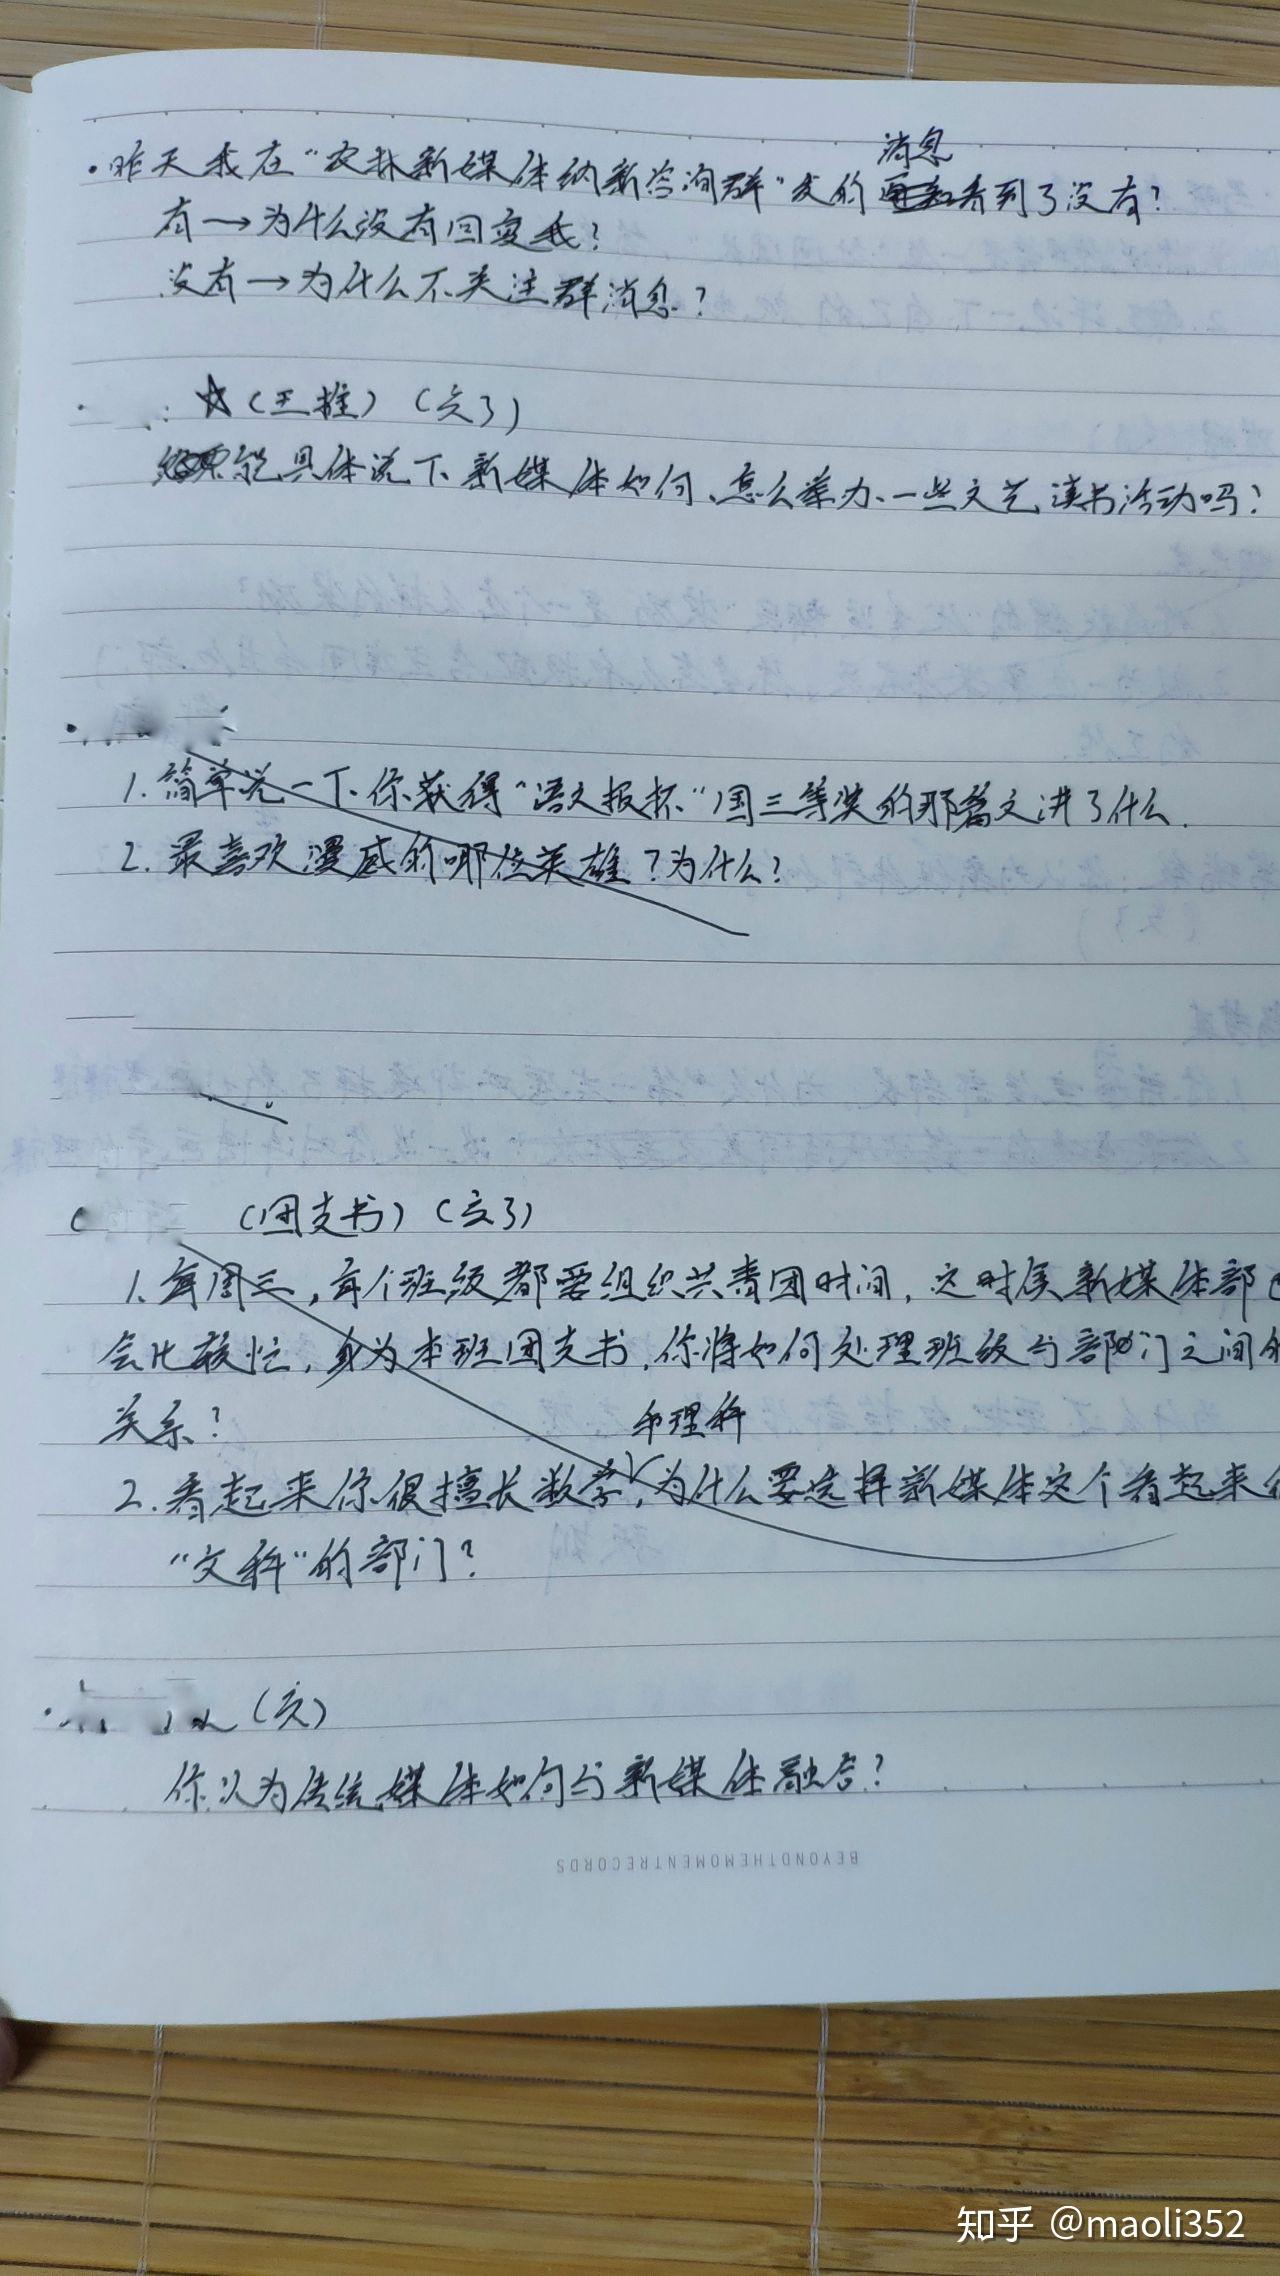 消息
·昨天我在"农林新媒体纳新咨询群"发的看到了没有？
有→为什么没有回复我？
没有→为什么不关注群消息？
☆(王推)(交了)
能具体说下新媒体如何、怎么举办、一些文艺、读书活动吗？
1.简单说一下你获得"语文报杯"国三等奖的那篇文讲了什么.
2.最喜欢漫威的哪位英雄？为什么？
(团支书)(交了)
1.每周三,每个班级都要组织共青团时间,这时候新媒体部
会比较忙,身为本班团支书,你将如何处理班级与部门之间的
关系？
和理科
2.看起来你很擅长数学,为什么要选择新媒体这个看起来
"文科"的部门？
(交)
你认为传统媒体如何与新媒体融合？
BEYONDTHEMOMENTRECORDS
知乎 @maoli352